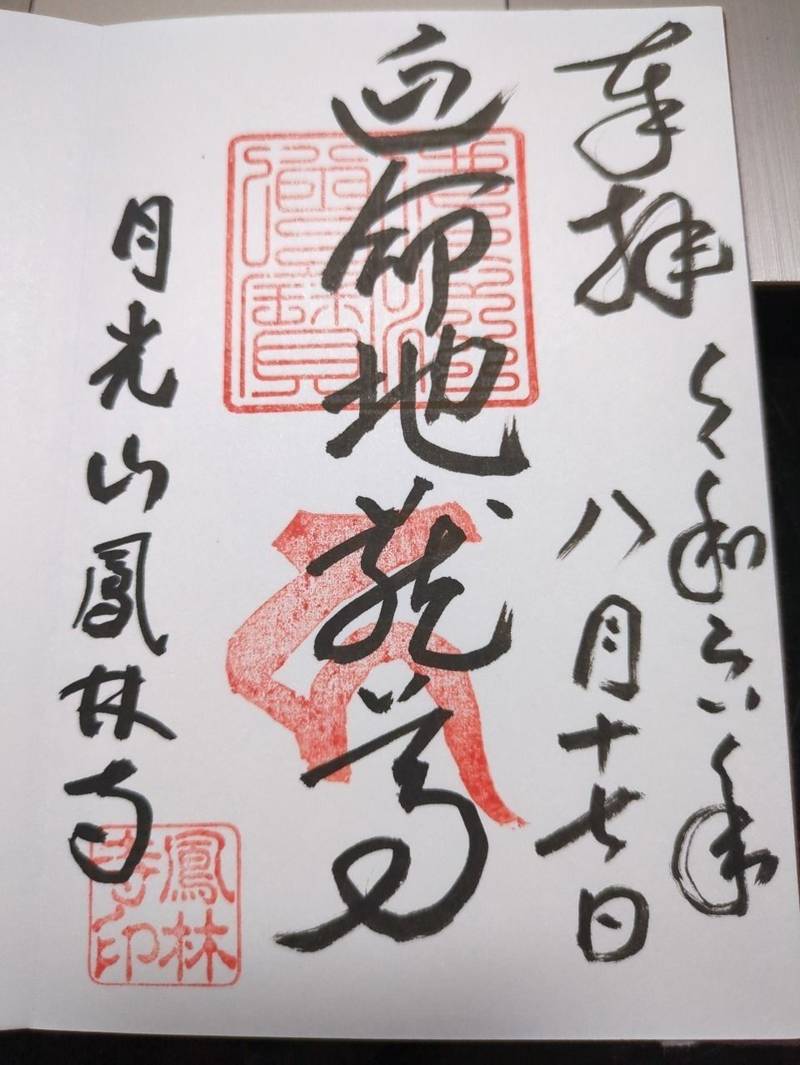 奉拝
令和六年
八月十七日
延命地蔵尊
月光山鳳林寺
鳳林
寺印